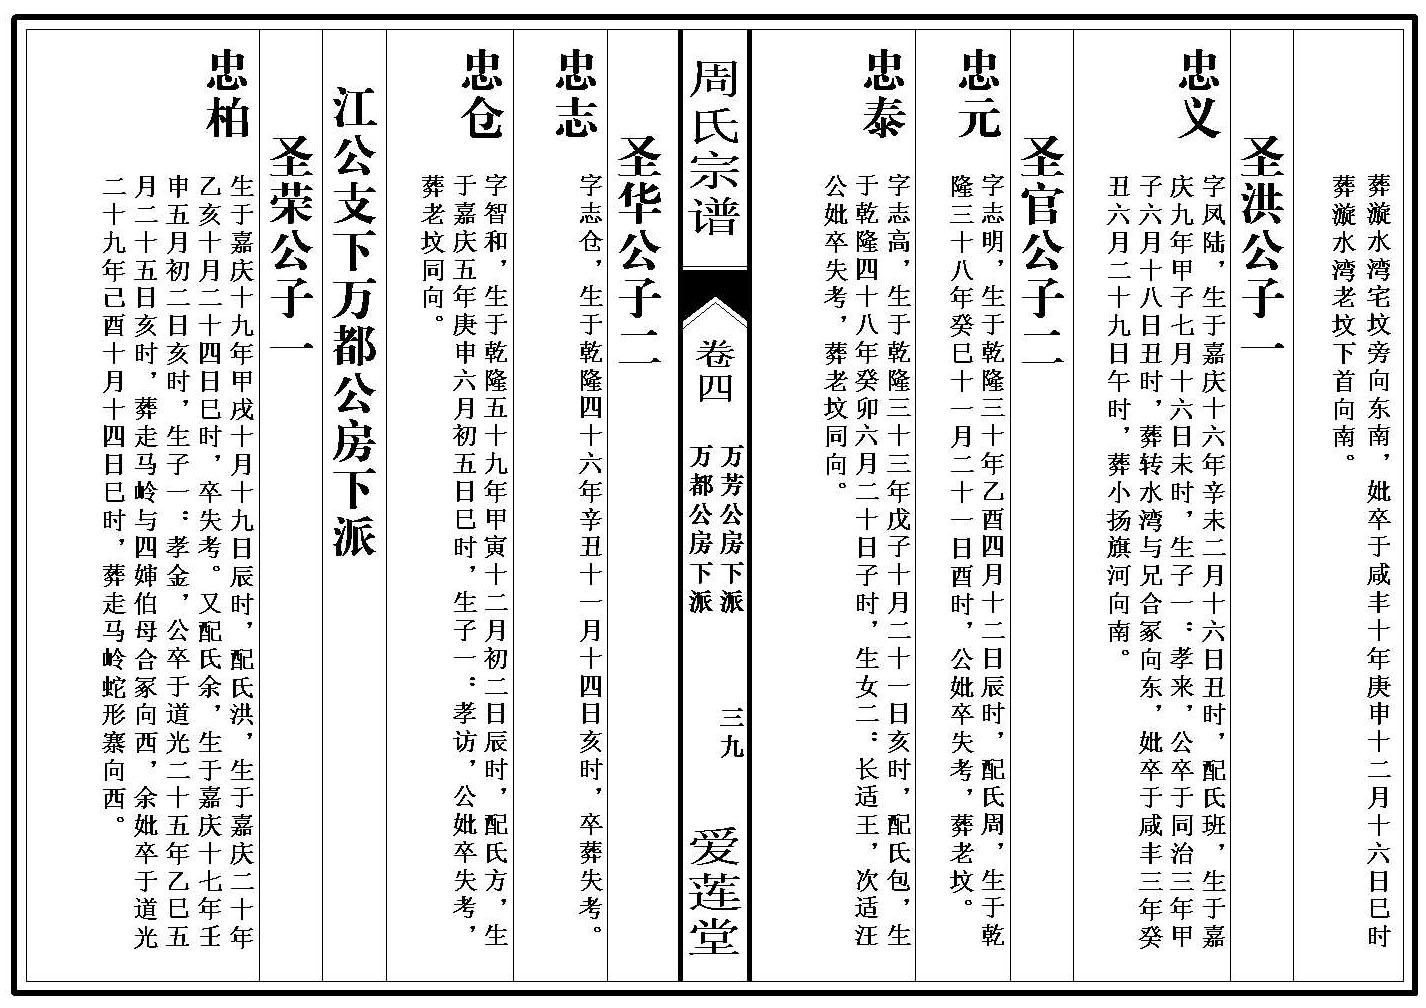 葬漩水湾宅坟旁向东南，妣卒于咸丰十年庚申十二月十六日巳时
葬漩水湾老坟下首向南。
圣洪公子一
忠义
字凤陆，生于嘉庆十六年辛未二月十六日丑时，配氏班，生于嘉
庆九年甲子七月十六日未时，生子一：孝来，公卒于同治三年甲
子六月十八日丑时，葬转水湾与兄合冢向东，妣卒于咸丰三年癸
丑六月二十九日午时，葬小扬旗河向南。
圣官公子二
忠元
字志明，生于乾隆三十年乙酉四月十二日辰时，配氏周，生于乾
隆三十八年癸巳十一月二十一日酉时，公妣卒失考，葬老坟。
忠泰
字志高，生于乾隆三十三年戊子十月二十一日亥时，配氏包，生
于乾隆四十八年癸卯六月二十日子时，生女二：长适王，次适汪
公妣卒失考，葬老坟同向。
周氏宗谱
卷四
万芳公房下派
万都公房下派
三九
爱莲堂
圣华公子二
忠志
字志仓，生于乾隆四十六年辛丑十一月十四日亥时，卒葬失考。
忠仓
字智和，生于乾隆五十九年甲寅十二月初二日辰时，配氏方，生
于嘉庆五年庚申六月初五日巳时，生子一：孝访，公妣卒失考，
葬老坟同向。
江公支下万都公房下派
圣荣公子一
忠柏
生于嘉庆十九年甲戌十月十九日辰时，配氏洪，生于嘉庆二十年
乙亥十月二十四日巳时，卒失考。又配氏余，生于嘉庆十七年壬
申五月初二日亥时，生子一：孝金，公卒于道光二十五年乙巳五
月二十五日亥时，葬走马岭与四婶伯母合冢向西，余妣卒于道光
二十九年己酉十月十四日巳时，葬走马岭蛇形寨向西。